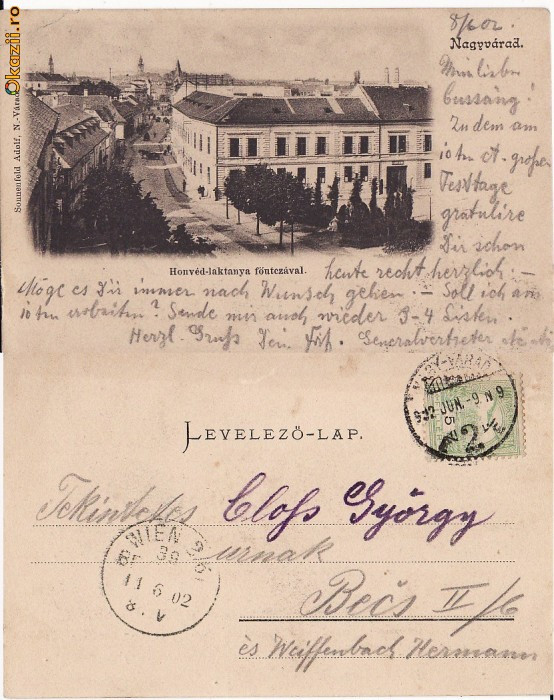 Okazii.ro
8/6 02.
Nagyvárad.
Mein lieber
Zu dem am
10 tn ct. großen
Festtage
gratulire
Dir schon
heute recht herzlich. –
Sonnenfeld Adolf, N.-Várad.
Honvéd-laktanya főutczával.
Möge es Dir immer nach Wunsch gehen. – Soll ich am
10 tn arbeiten? Sende mir auch wieder 3-4 Listen.
Herzl. Gruß Dein Generalvertreter
NAGY-VÁRAD
LEVELEZŐ-LAP.
Tekintetes Closs György
urnak
Bécs II/6
és Weiffenbach Hermann
WIEN
11 6 02